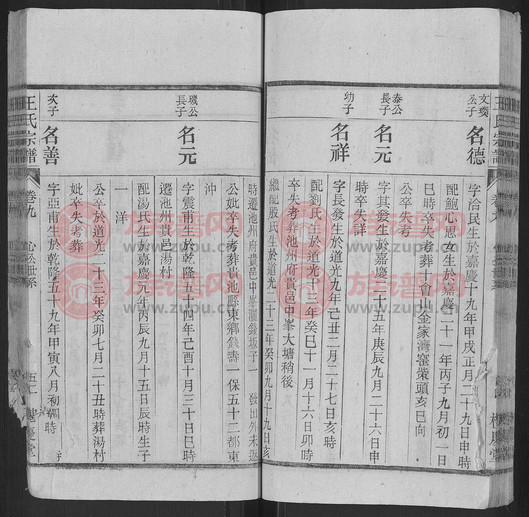 王氏宗譜
文奬
公子
名德
字治民生於嘉慶十九年甲戌正月二十九日申時
配鮑心思女生於嘉慶二十一年丙子九月初一日
巳時卒失考葬十會山金家灣窰柴頭亥巳向
公卒失考
泰公
長子
名元
字其發生於嘉慶二十五年庚辰九月二十六日申
時卒失詳
幼子
名祥
字長發生於道光九年己丑二月二十七日亥時
配劉氏生於道光十三年癸巳十一月十六日卯時
卒失考葬池州府貴邑中峯大塘稍後
繼配殷氏生於道光二十三年癸卯九月十九日亥
時遷池州府貴邑中峯
子一
發出外未返
公妣卒失考葬貴池縣東鄉
一保五十二都東
沖
璣公
長子
名元
字震南生於乾隆五十四年己酉十月三十日巳時
遷池州貴邑湯村
配湯氏生於嘉慶元年丙辰九月十五日辰時生子
一
洋
公卒於道光二十三年癸卯七月二十丑時葬湯村
妣卒失考葬
次子
名善
字亞南生於乾隆五十九年甲寅八月初
時
王氏宗譜
卷九
心公世系
五二
樓慶堂
族譜网
www.zupu.cn